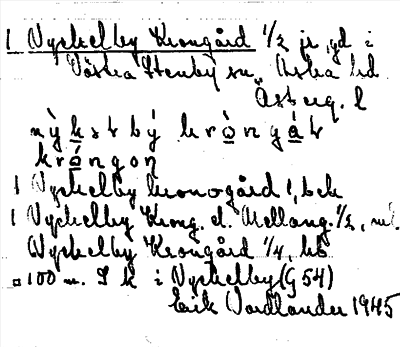 1 Nyckelby Kronogård 1/2 jr, gd i
Västra Stenby sn, Aska hd
Österg. l
nỳkstbý kròngát
króngon
1 Nyckelby kronogård 1, bek
1 Nyckelby Krong. d. Mellang. 1/2,
Nyckelby Krongård 1/4, kb
100 m. S k i Nyckelby (G 54)
Erik Nordlander 1945